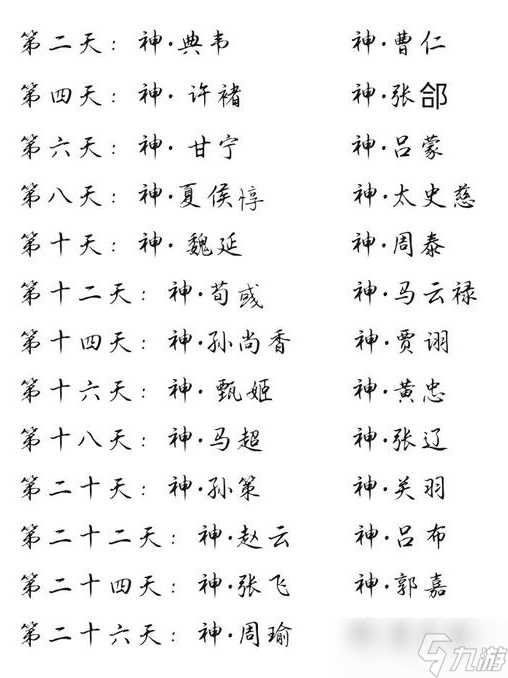 第二天：神·典韦 神·曹仁
第四天：神·许褚 神·张郃
第六天：神·甘宁 神·吕蒙
第八天：神·夏侯惇 神·太史慈
第十天：神·魏延 神·周泰
第十二天：神·荀彧 神·马云禄
第十四天：神·孙尚香 神·贾诩
第十六天：神·甄姬 神·黄忠
第十八天：神·马超 神·张辽
第二十天：神·孙策 神·关羽
第二十二天：神·赵云 神·吕布
第二十四天：神·张飞 神·郭嘉
第二十六天：神·周瑜
九游